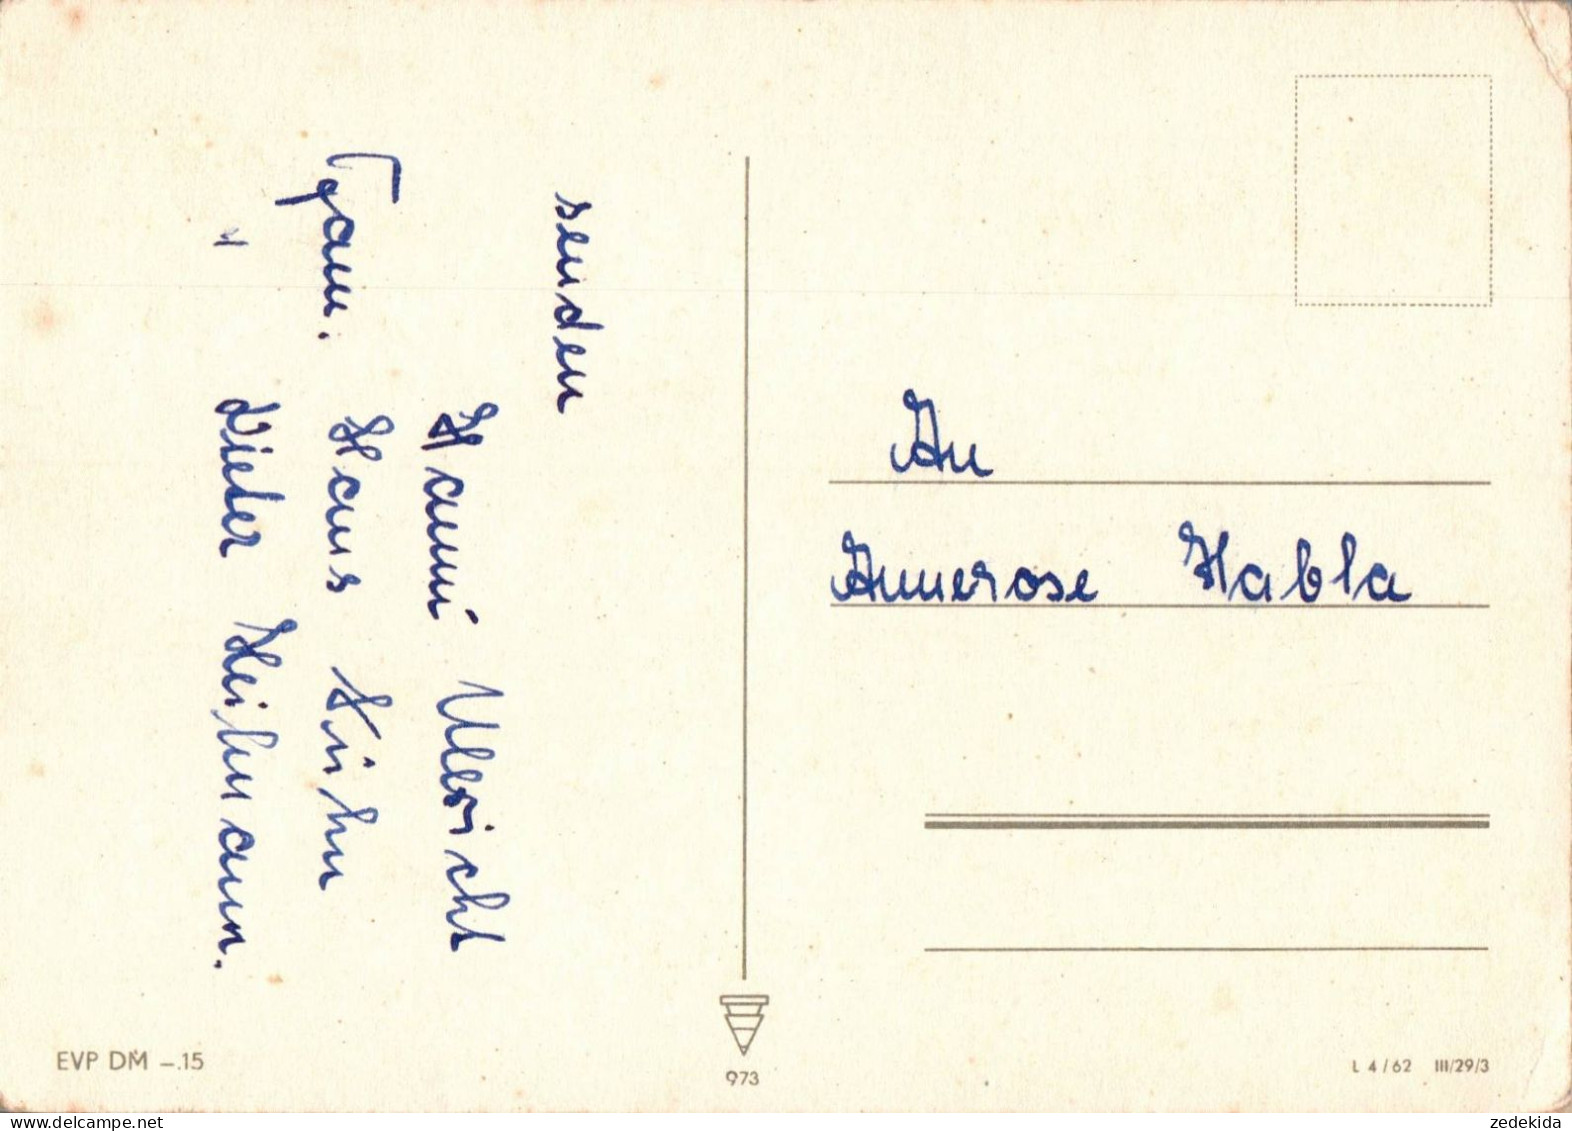 senden
Hanni Ulbricht
Fam. Hans Kühn
" Dieter Heilmann.
An
Annerose Habla
EVP DM –.15
973
L 4/62 III/29/3
zedekida